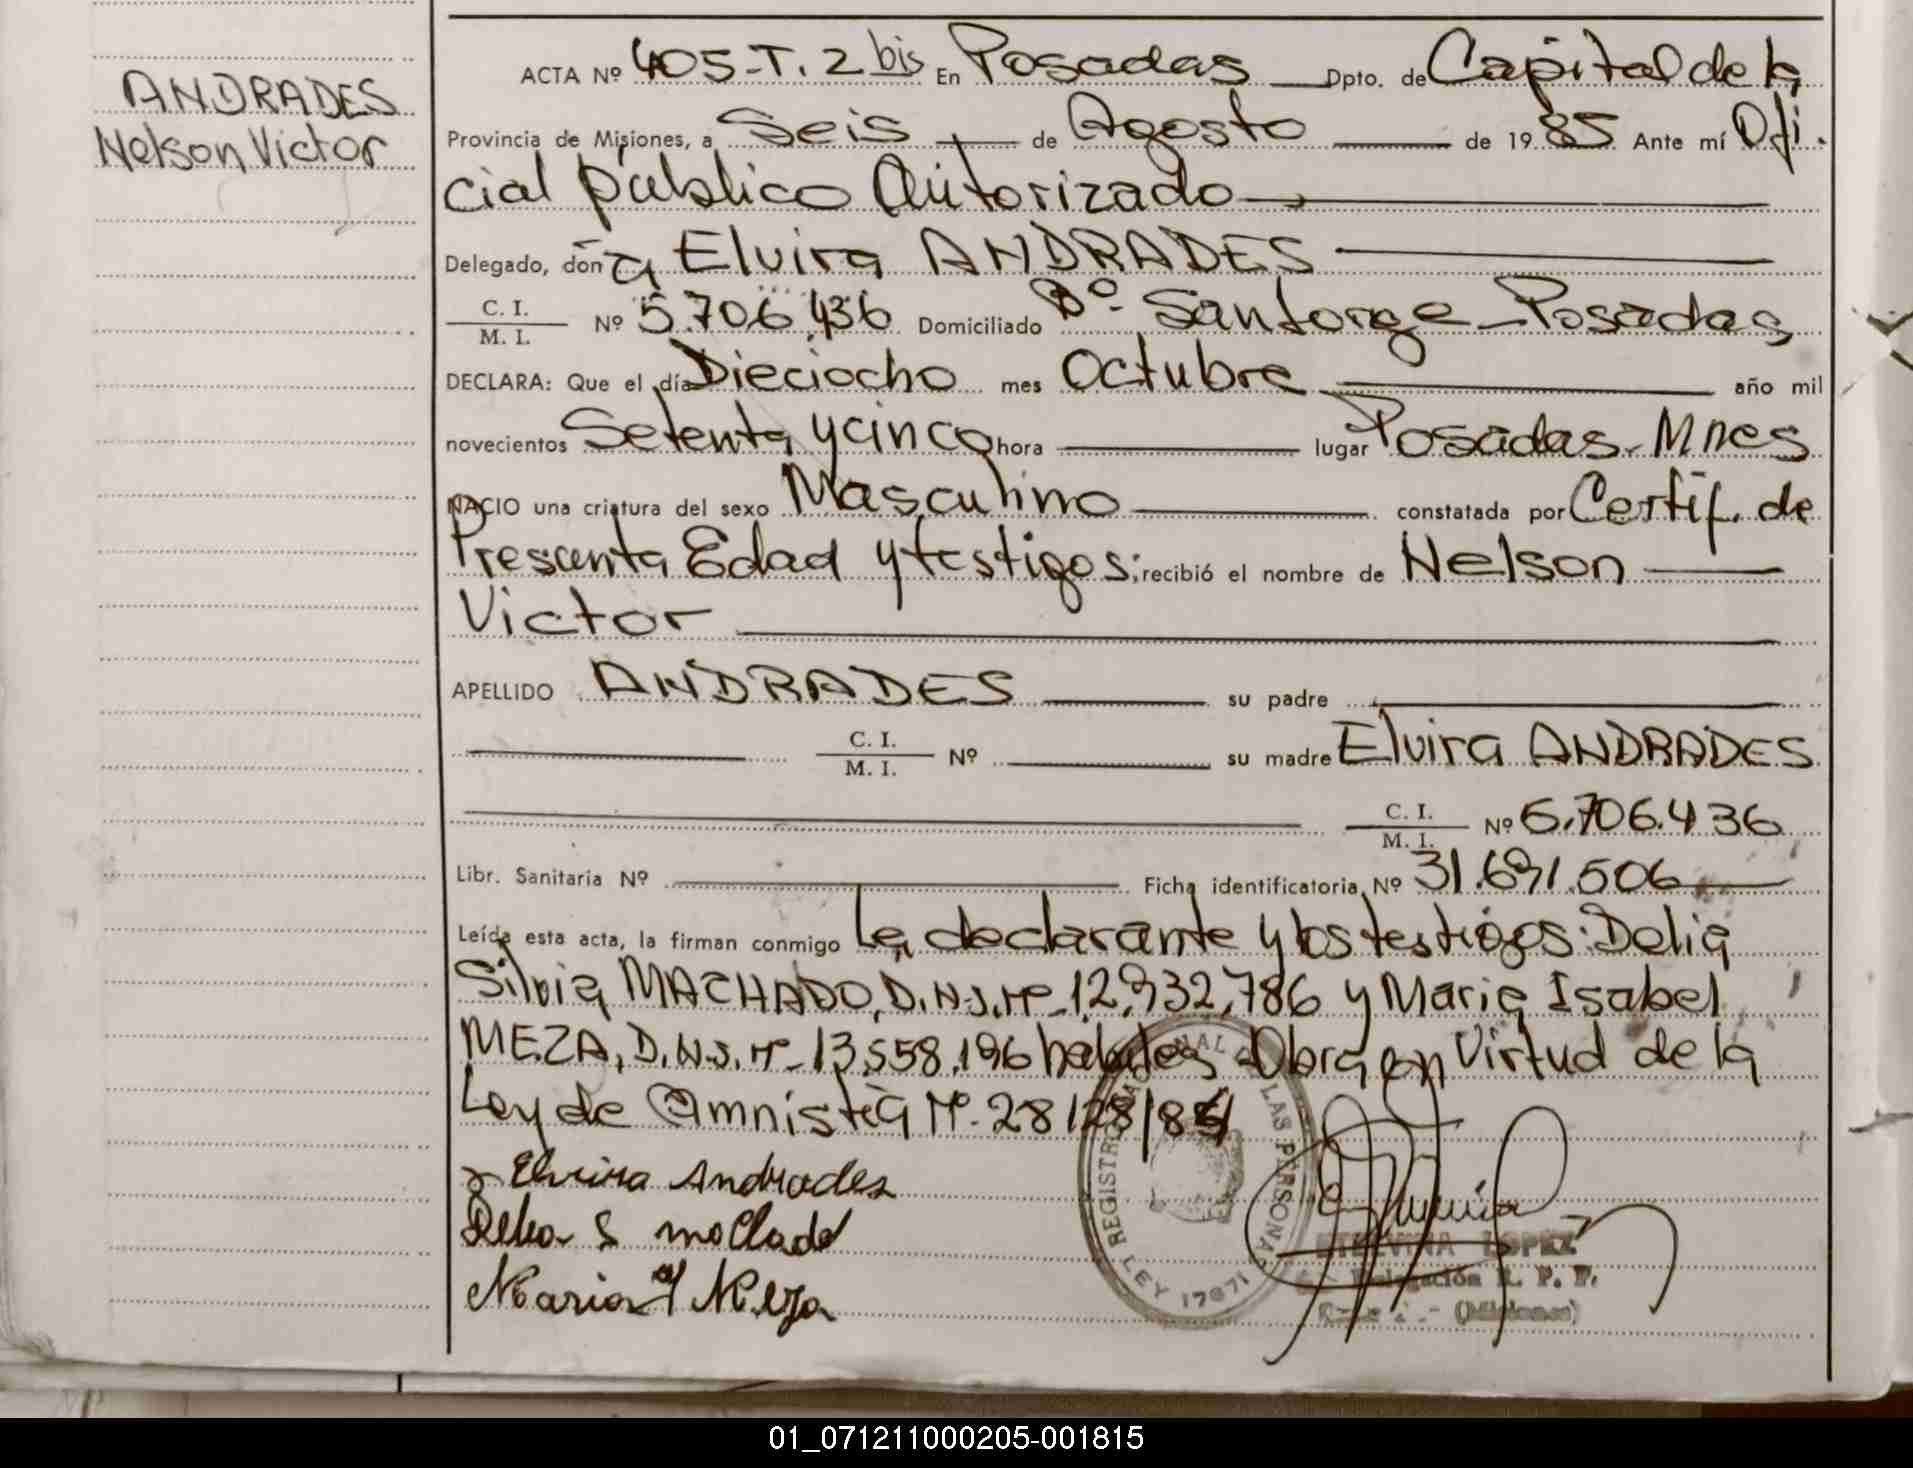 ANDRADES
Nelson Victor
ACTA Nº 405-T. 2 bis En Posadas Dpto. de Capital de la
Provincia de Misiones, a Seis de Agosto de 1985 Ante mí Ofi-
cial público Autorizado
Delegado, doña Elvira ANDRADES
C. I.
M. I. Nº 5.706.436 Domiciliado Bº San Jorge - Posadas
DECLARA: Que el día Dieciocho mes Octubre año mil
novecientos Setenta y cinco hora lugar Posadas. Mnes
NACIO una criatura del sexo Masculino constatada por Certif. de
Presunta Edad y testigos; recibió el nombre de Nelson
Victor
APELLIDO ANDRADES su padre
C. I.
M. I. Nº su madre Elvira ANDRADES
C. I.
M. I. Nº 5.706.436
Libr. Sanitaria Nº Ficha identificatoria Nº 31.691.506
Leída esta acta, la firman conmigo La declarante y los testigos: Delia
Silvia MACHADO, D.N.I. Nº 12.932.786 y Maria Isabel
MEZA, D.N.I. Nº 13.558.196 habiles Obra en Virtud de la
Ley de Amnistia Nº 28128/84
Elvira Andrades
Delia S Machado
Maria I Meza
REGISTRO NACIONAL DE LAS PERSONAS
LEY 17671
ETELVINA LOPEZ
Delegación R. P. P.
(Misiones)
01_071211000205-001815